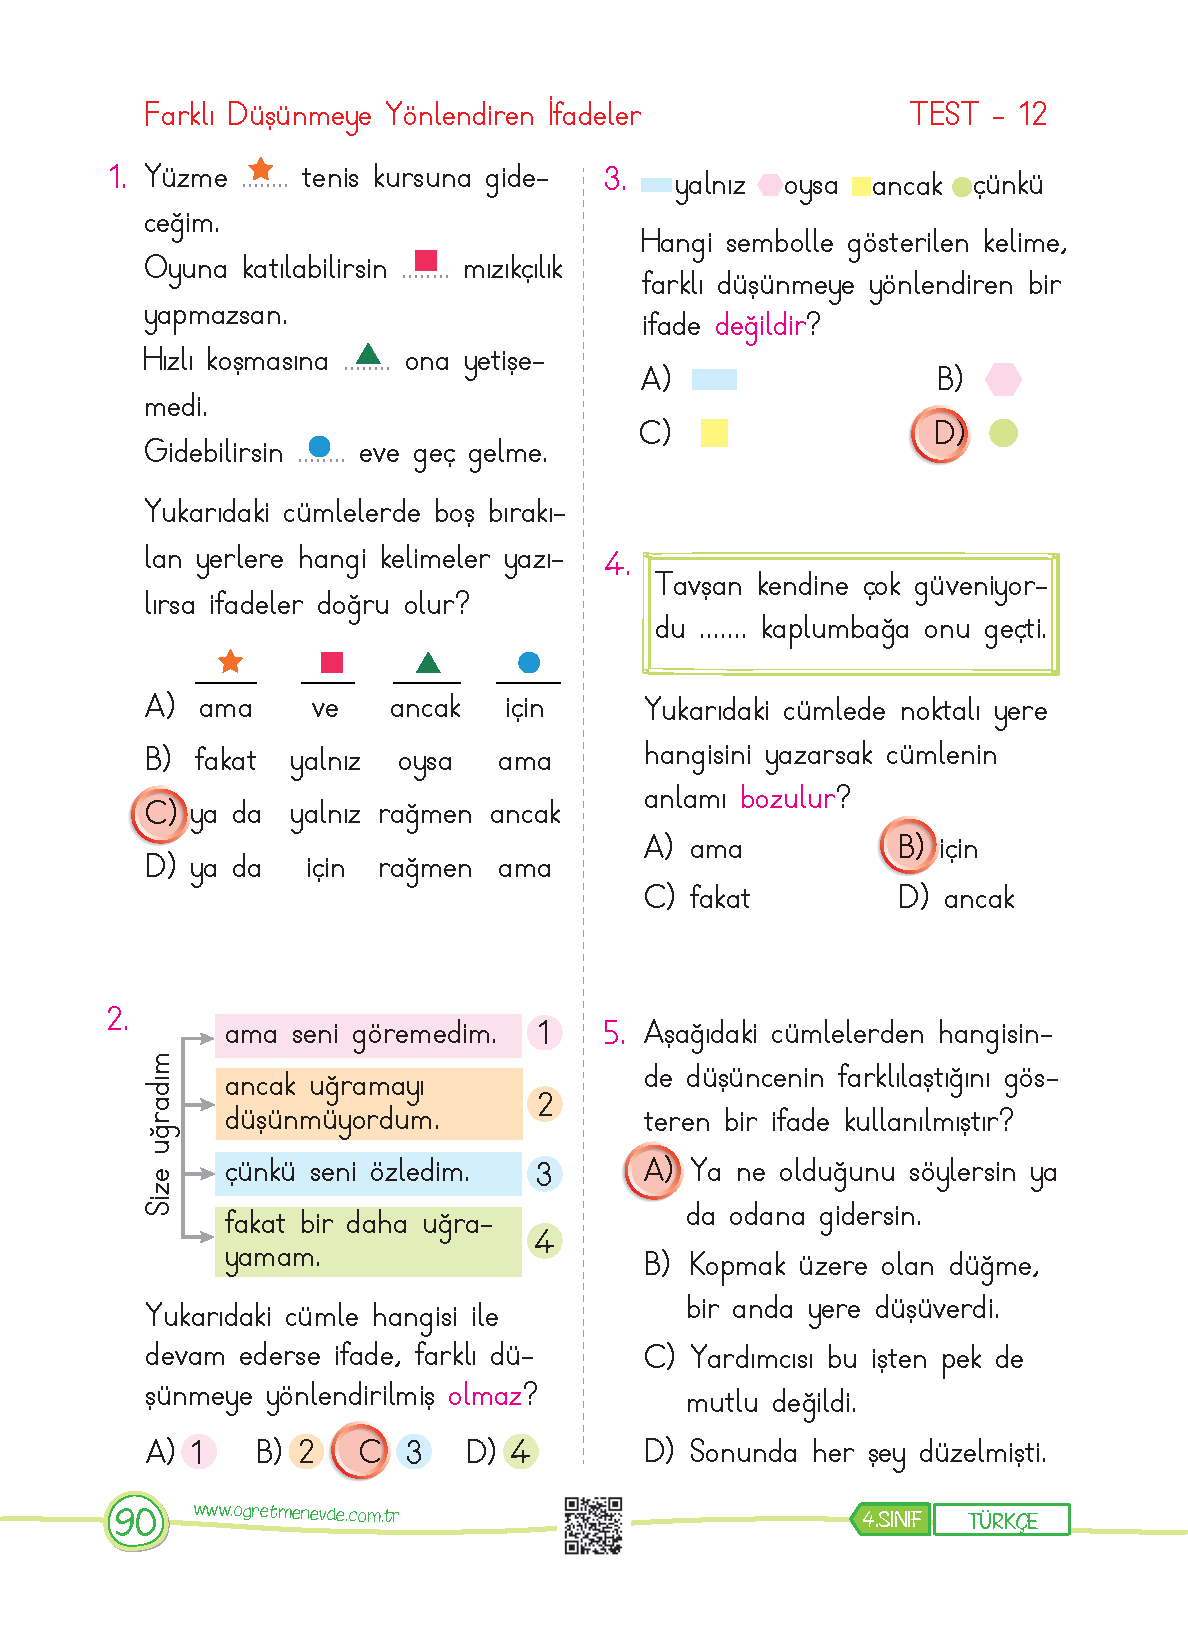 Farklı Düşünmeye Yönlendiren İfadeler
TEST - 12
1. Yüzme ........ tenis kursuna gide-
ceğim.
Oyuna katılabilirsin ........ mızıkçılık
yapmazsan.
Hızlı koşmasına ........ ona yetişe-
medi.
Gidebilirsin ........ eve geç gelme.
Yukarıdaki cümlelerde boş bırakı-
lan yerlere hangi kelimeler yazı-
lırsa ifadeler doğru olur?
A) ama ve ancak için
B) fakat yalnız oysa ama
C) ya da yalnız rağmen ancak
D) ya da için rağmen ama
2.
Size uğradım
ama seni göremedim. 1
ancak uğramayı
düşünmüyordum. 2
çünkü seni özledim. 3
fakat bir daha uğra-
yamam. 4
Yukarıdaki cümle hangisi ile
devam ederse ifade, farklı dü-
şünmeye yönlendirilmiş olmaz?
A) 1 B) 2 C 3 D) 4
3. yalnız oysa ancak çünkü
Hangi sembolle gösterilen kelime,
farklı düşünmeye yönlendiren bir
ifade değildir?
A) B)
C) D)
4.
Tavşan kendine çok güveniyor-
du ....... kaplumbağa onu geçti.
Yukarıdaki cümlede noktalı yere
hangisini yazarsak cümlenin
anlamı bozulur?
A) ama B) için
C) fakat D) ancak
5. Aşağıdaki cümlelerden hangisin-
de düşüncenin farklılaştığını gös-
teren bir ifade kullanılmıştır?
A) Ya ne olduğunu söylersin ya
da odana gidersin.
B) Kopmak üzere olan düğme,
bir anda yere düşüverdi.
C) Yardımcısı bu işten pek de
mutlu değildi.
D) Sonunda her şey düzelmişti.
90 www.ogretmenevde.com.tr
4.SINIF TÜRKÇE